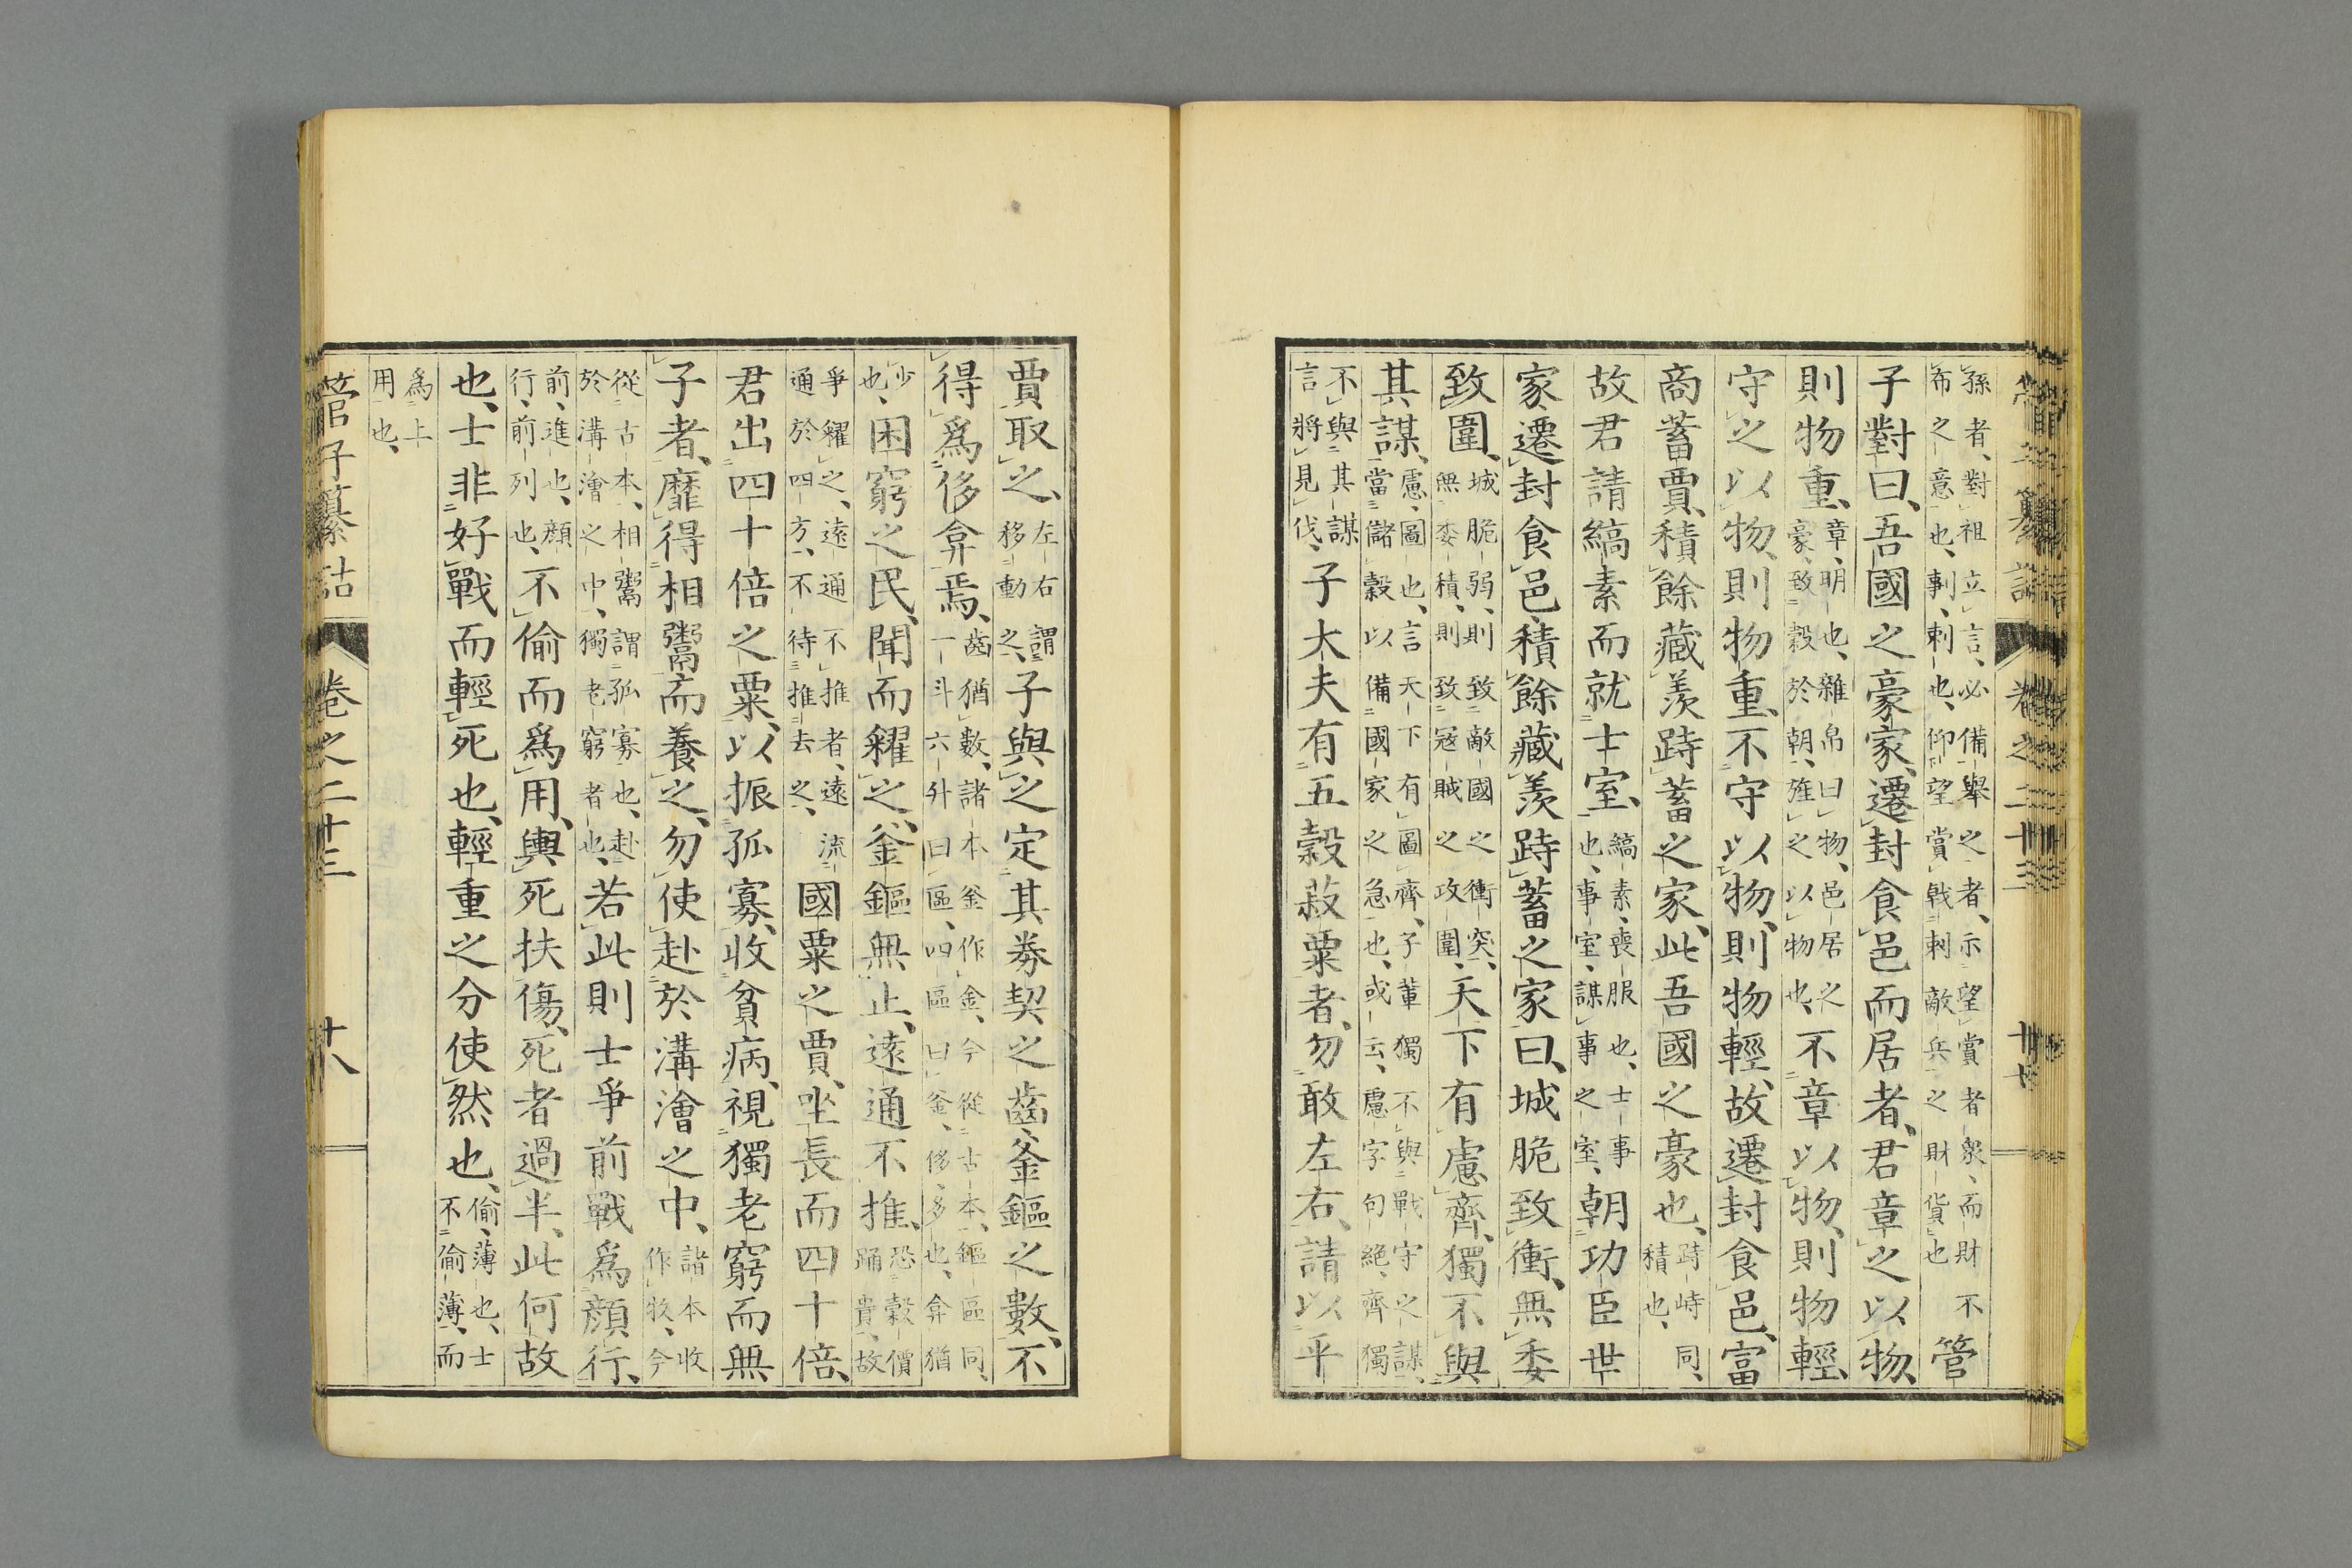 孫者、對祖立言、必備舉之者、示望賞者衆、而財不
希之意也、剚、刺也、仰望賞戟刺敵兵之財貨也
管
子對曰、吾國之豪家、遷封食邑而居者、君章之以物、
則物重、不章以物、則物輕、
章、明也、雜帛曰物、邑居之
豪、致穀於朝、旌之以物也、
守之以物、則物重、不守以物、則物輕、故遷封食邑、富
商蓄賈、積餘藏羨跱蓄之家、此吾國之豪也、
跱峙同、
積也、
故君請縞素而就士室、朝功臣世
縞素、喪服也、士事
也、事室、謀事之室、
家、遷封食邑、積餘藏羨跱蓄之家曰、城脆致衝、無委
致圍、天下有慮、齊獨不與
城脆弱、則致敵國之衝突、
無委積、則致冦賊之攻圍、
其謀、
慮、圖也、言天下有圖齊、子輩獨不與戰守之謀、
當儲穀以備國家之急也、或云、慮字句絕、齊獨
不與其謀
言將見伐、
子大夫有五穀菽粟者、勿敢左右、請以平
管子纂詁 卷之二十三 廿七
賈取之、子與之定其券契之齒、釜鏂之數、不
左右謂
移動之、
得爲侈弇焉、
齒猶數、諸本釜作金、今從古本、鏂區同、
一斗六升曰區、四區曰釜、侈、多也、弇猶
少
也、
困窮之民、聞而糴之、釜鏂無止、遠通不推、
恐穀價
踊貴、故
爭糴之、遠通不推者、遠流
通於四方、不待推推去之、
國粟之賈、坐長而四十倍、
君出四十倍之粟、以振孤寡、收貧病、視獨老窮而無
子者、靡得相鬻而養之、勿使赴於溝澮之中、
諸本收
作牧、今
從古本、相鬻謂孤寡也、赴
於溝澮之中、獨老窮者也、
若此則士爭前戰爲顔行、
前、進也、顔
行、前列也、
不偷而爲用、輿死扶傷、死者過半、此何故
也、士非好戰而輕死也、輕重之分使然也、
偷、薄也、士
不偷薄、而
爲上
用也、
管子纂詁 卷之二十三 廿八